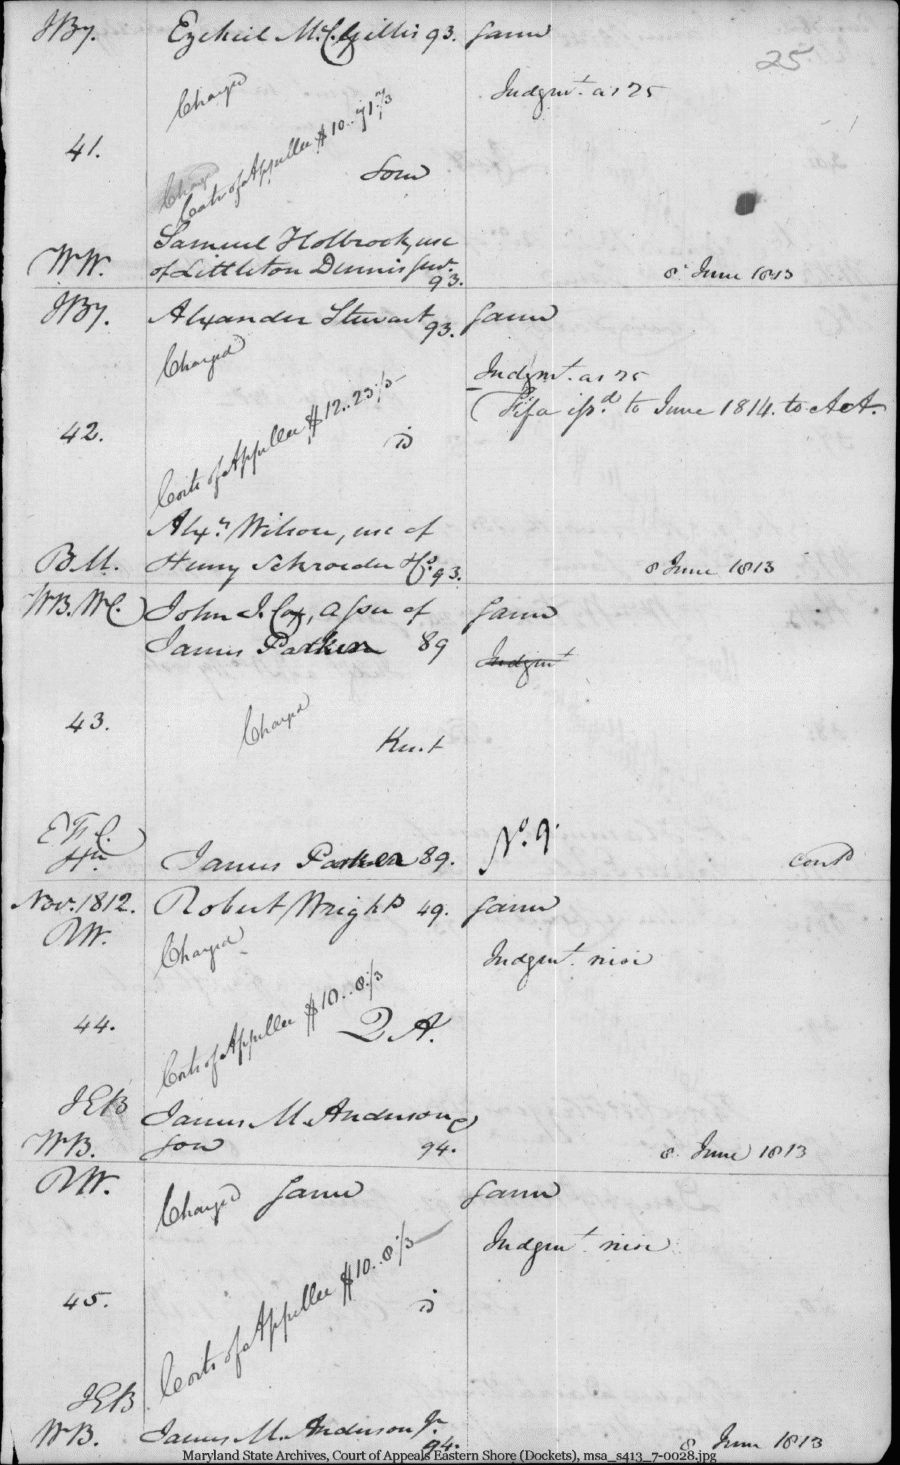 JBy. Ezekiel McC. Gillis 93. Same
25
Charged
Judgmt. as 25
Costs of Appellee $10..71 2/3
41.
Som
Samuel Holbrook, use
WW. of Littleton Dennis Surv. 93.
8 June 1813
JBy. Alexander Stewart 93. Same
Charged
Judgmt. as 25
Fi fa issd. to June 1814. to AA.
Costs of Appellee $12..23 1/3
42.
is
Alexr. Wilson, use of
B.M. Henry Schroeder & Co. 93.
8 June 1813
WB. WC. John I. Cox, assee of Same
James Parker 89
Judgmt
Charged
43.
Kent
EFC.
No. 9.
James Parker 89.
contd
Nov. 1812. Robert Wright 49. Same
RW.
Charged
Judgmt. nisi
Costs of Appellee $10..8 1/3
44.
Q A.
JEB James M. Anderson
WB. Son 94.
8 June 1813
RW. Same Same
Charged
Judgmt. nisi
Costs of Appellee $10..8 1/3
45.
is
JEB
WB. James M. Anderson Jr. 94.
8 June 1813
Maryland State Archives, Court of Appeals Eastern Shore (Dockets), msa_s413_7-0028.jpg